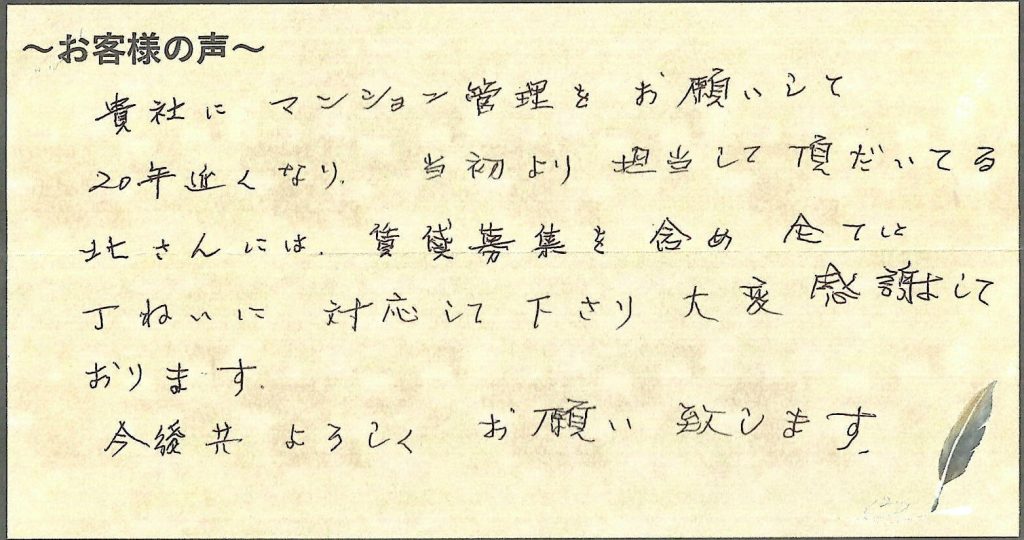 ～お客様の声～
貴社に マンション管理を お願いして
20年近くなり、当初より 担当して頂だいてる
北さんには、賃貸募集を含め 全てに
丁ねいに 対応して下さり 大変 感謝して
おります。
今後共 よろしく お願い致します。